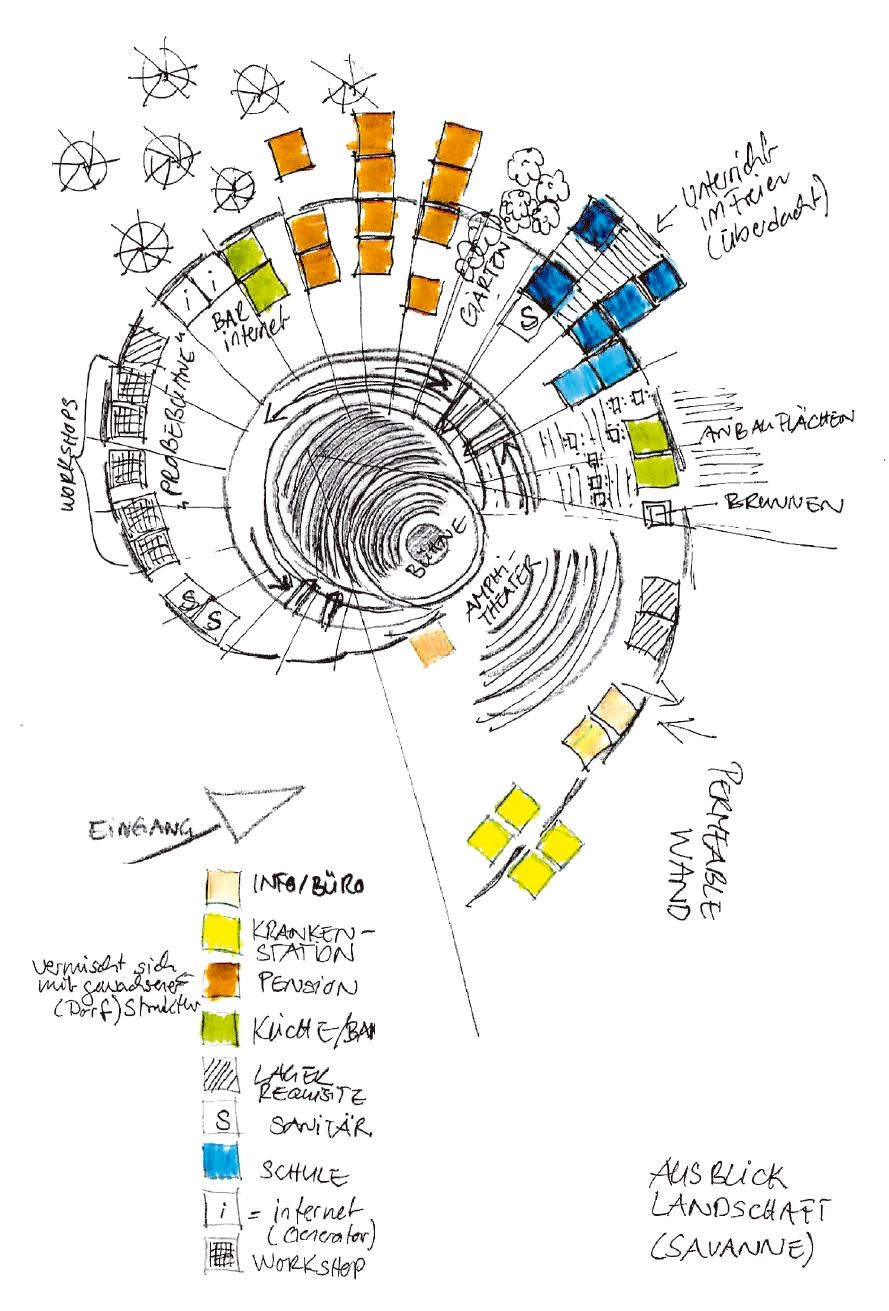 Unterricht
im Freien
(überdacht)
GÄRTEN
S
i i
BAR
internet
WORKSHOPS
"PROBEBÜHNE"
ANBAUFLÄCHEN
BRUNNEN
BÜHNE
AMPHI-
THEATER
S
S
PERMEABLE
WAND
EINGANG
INFO/BÜRO
KRANKEN-
STATION
vermischt sich
mit gewachsener
(Dorf) Struktur
PENSION
KÜCHE/BAR
LAGER
REQUISITE
S SANITÄR
SCHULE
i = internet
(Generator)
WORKSHOP
AUSBLICK
LANDSCHAFT
(SAVANNE)